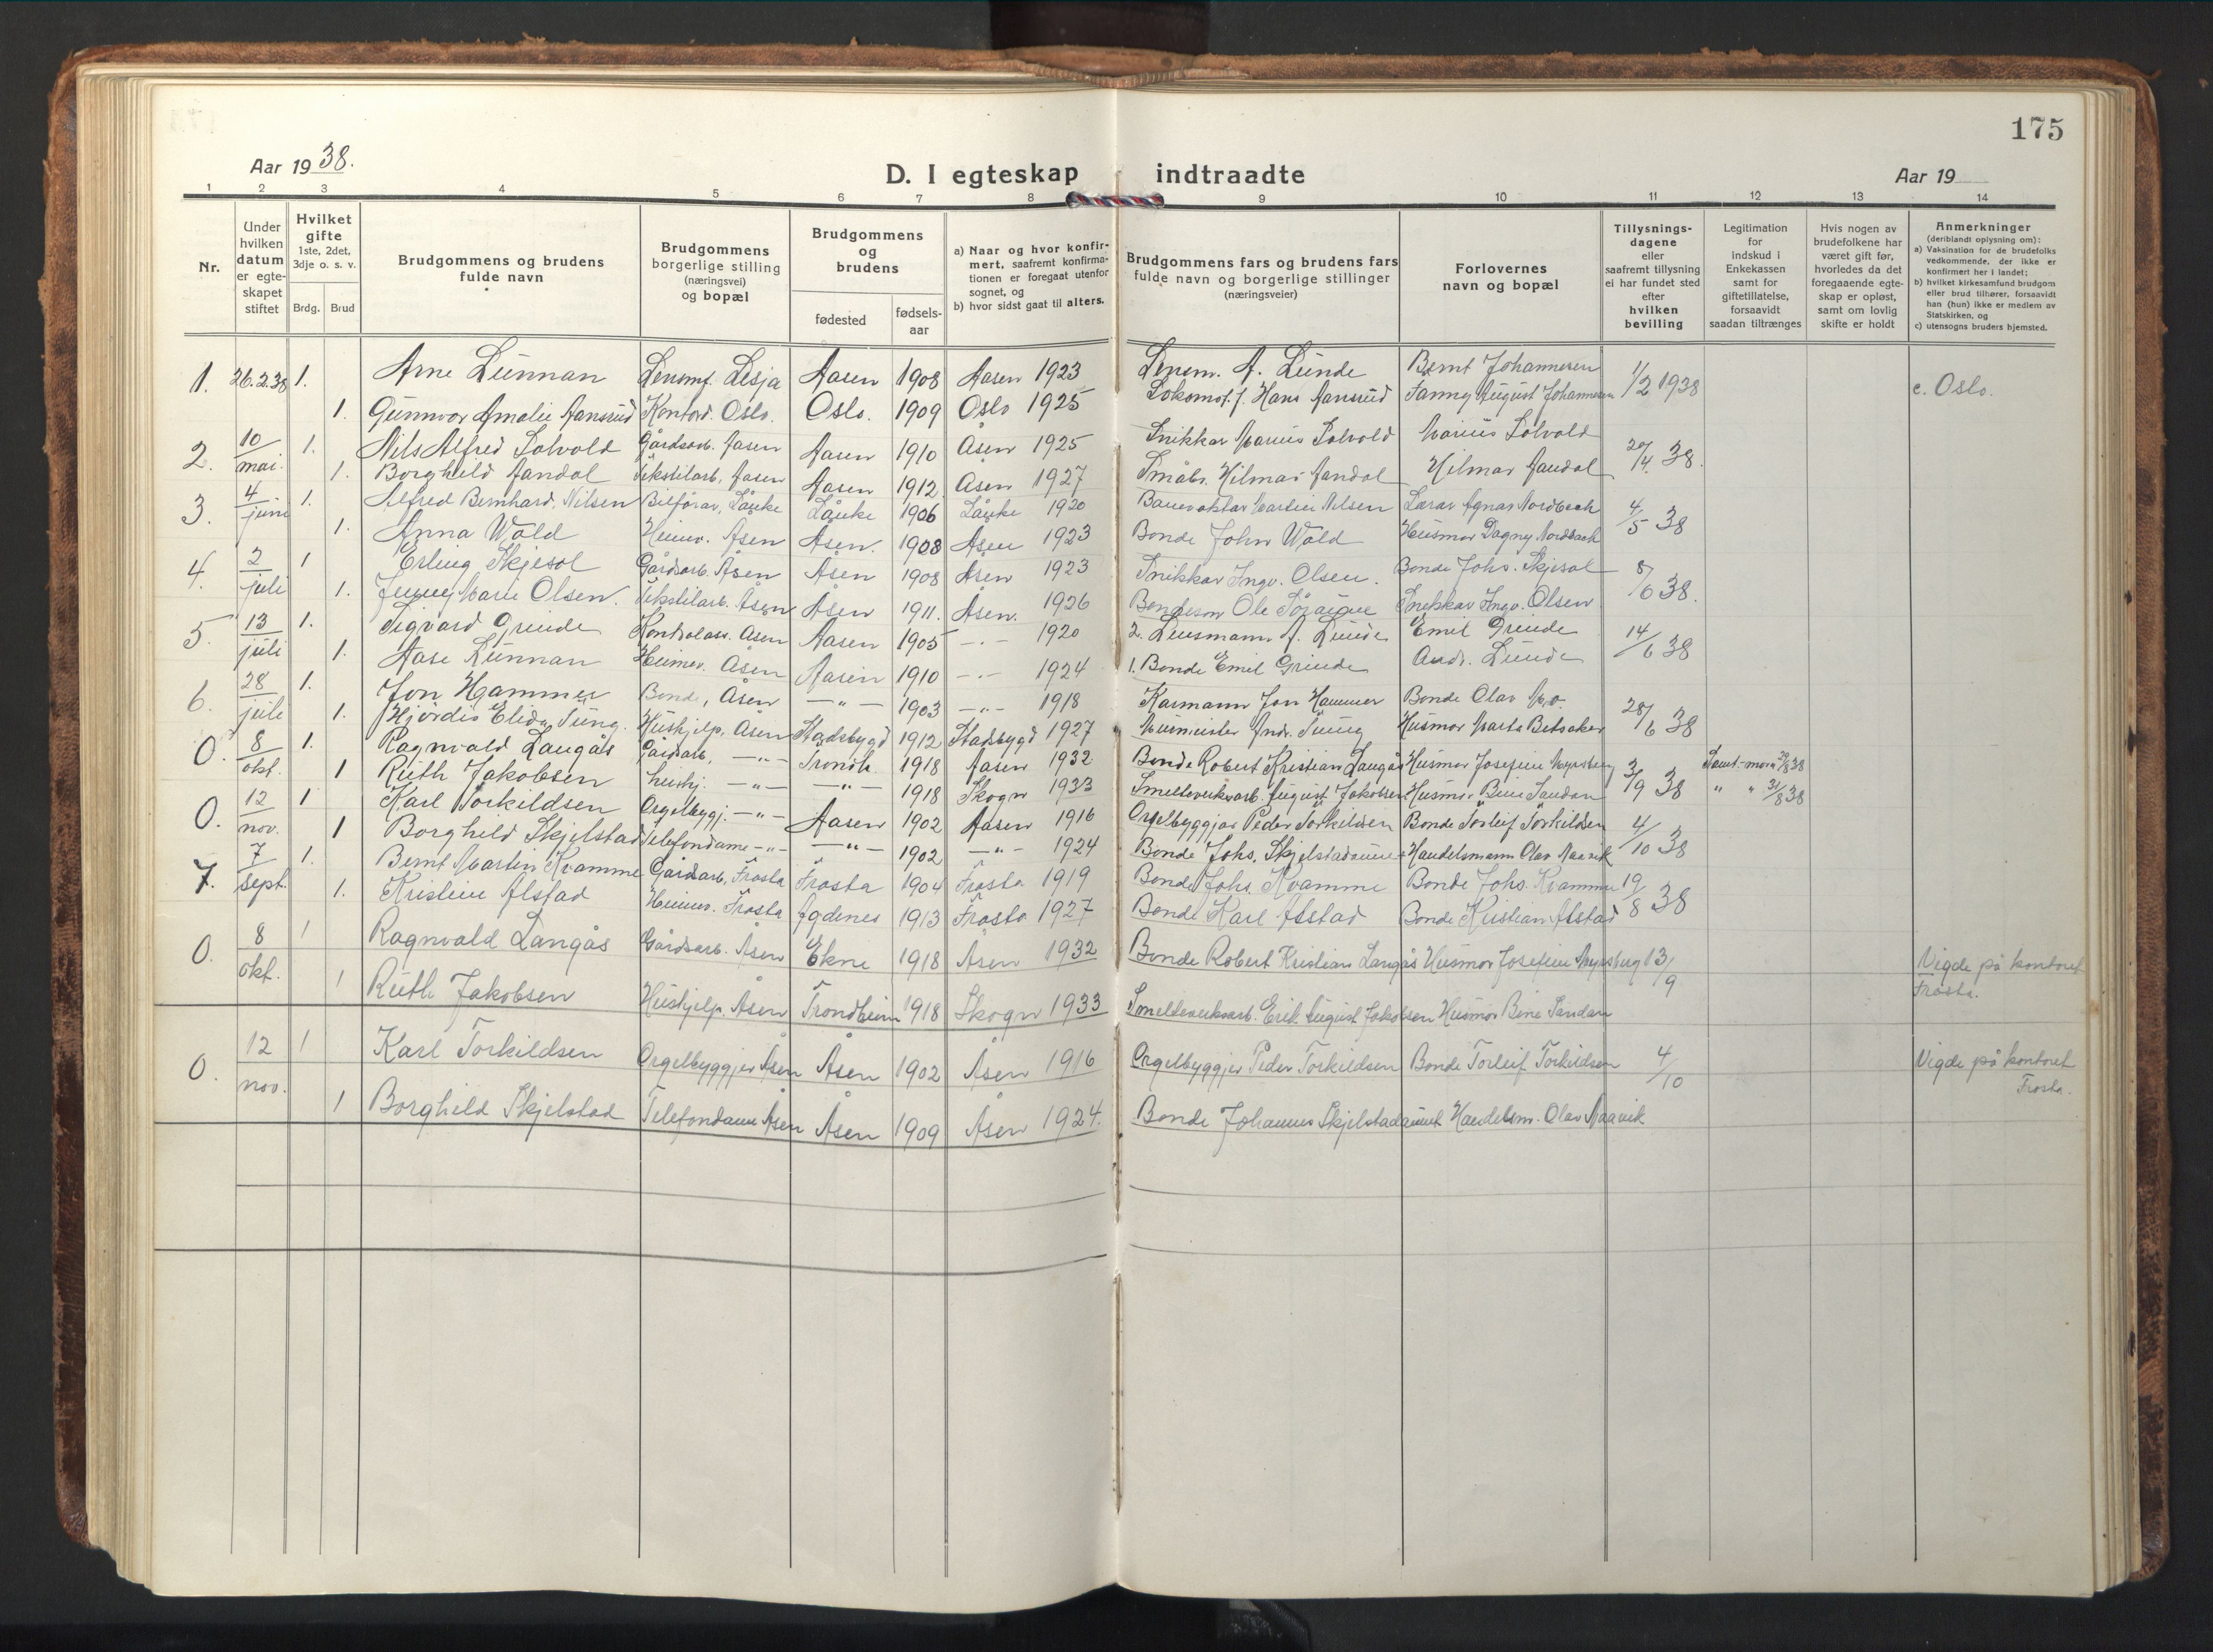 175
Aar 1938.
D. I egteskap indtraadte
Aar 19
1 2 3 4 5 6 7 8 9 10 11 12 13 14
Nr.
Under hvilken datum er egte- skapet stiftet
Hvilket gifte 1ste, 2det, 3dje o. s. v.
Brdg. Brud
Brudgommens og brudens fulde navn
Brudgommens borgerlige stilling (næringsvei) og bopæl
Brudgommens og brudens
fødested
fødsels- aar
a) Naar og hvor konfir- mert, saafremt konfirma- tionen er foregaat utenfor sognet, og
b) hvor sidst gaat til alters.
Brudgommens fars og brudens fars fulde navn og borgerlige stillinger (næringsveier)
Forlovernes navn og bopæl
Tillysnings- dagene eller saafremt tillysning ei har fundet sted efter hvilken bevilling
Legitimation for indskud i Enkekassen samt for giftetillatelse, forsaavidt saadan tiltrænges
Hvis nogen av brudefolkene har været gift før, hvorledes da det foregaaende egte- skap er opløst, samt om lovlig skifte er holdt
Anmerkninger (deriblandt oplysning om):
a) Vaksination for de brudefolks vedkommende, der ikke er konfirmert her i landet;
b) hvilket kirkesamfund brudgom eller brud tilhører, forsaavidt han (hun) ikke er medlem av Statskirken, og
c) utensogns bruders hjemsted.
1. 26.2.38 1. Arne Lünnan Lensmf. Lesja Aasen 1908 Aasen 1923 Lensm. A. Lünde Bernt Johannesen 1/2 1938 c. Oslo.
1. Günnvor Amalie Aansrud Kontord. Oslo. Oslo. 1909 Oslo 1925 Lokomot.f. Hans Aansrud Fanny August Johannesen
2. 10/mai. 1. Nils Alfred Solvold Gårdsarb. Aasen Aasen 1910 Åsen 1925 Snikkar Marius Solvold Marius Solvold 20/4 38.
1. Borghild Aandal Tekstilarb. Aasen Aasen 1912 Åsen 1927 Småbr. Hilmar Aandal Hilmar Aandal
3. 4/juni 1. Alfred Bernhard Nilsen Bilførar, Lånke Lånke 1906 Lånke 1920 Banevaktar Martin Nilsen Lærar Agnar Nordback 4/5 38
1. Anna Wold Heimv. Åsen Åsen. 1908 Åsen 1923 Bonde John Wold Husmor Dagny Nordback
4. 2/juli 1 Erling Skjesol Gårdsarb. Åsen Åsen 1908 Åsen 1923 Snikkar Ingv. Olsen. Bonde Johs. Skjesol 8/6 38.
1. Jenny Marie Olsen. Tekstilarb. Åsen Åsen 1911. Åsen. 1926 Bondeson Ole Snekkar Ingv. Olsen
5. 13/juli 1. Sigvard Grinde Kontrolass. Åsen Aasen 1905 -.- 1920 2. Lensmann A. Lünde Emil Grinde 14/6 38
1. Aase Lünnan Heimv. Åsen Aasen 1910 -.- 1924 1. Bonde Emil Grinde Andr. Lünde
6. 28/juli 1. Jon Hammer Bonde, Åsen -"- 1903 -"- 1918 Kasmann Jon Hammer Bonde Olav Moe 28/6 38
1. Hjördis Elida Tüng. Hushjelp, Åsen Stadsbygd 1912 Stadsbygd 1927 Mürmeister Andr. Tüng Husmor Marta Betsaker
0. 8/okt. 1. Ragnvald Langås Gårdsarb, -"- Trondh. 1918 Aasen 1932 Bonde Robert Kristian Langås Husmor Josefine Myrsberg 3/9 38
1 Ruth Jakobsen hushj. -"- -"- 1918 Skogn 1933 Smelteverksarb. August Jakobsen Husmor Bine Sandan " " 31/8 38
0. 12/nov. 1 Karl Torkildsen Orgelbyggj. -"- Aasen 1902 Aasen 1916 Orgelbyggjar Peder Torkildsen Bonde Torleif Torkildsen 4/10 38
1 Borghild Skjelstad Telefondame -"- -"- 1902 -"- 1924 Bonde Johs. Skjelstadaunet Handelsmann Olav Maavik
7. 7/sept. 1. Bernt Martin Kvamme Gårdsarb, Frosta Frosta 1904 Frosta 1919 Bonde Johs. Kvamme Bonde Johs. Kvamme 19/8 38
1. Kristine Alstad Heimv. Frosta Agdenes 1913 Frosta 1927 Bonde Karl Alstad Bonde Kristian Alstad
0. 8/okt. 1 Ragnvald Langås Gårdsarb. Åsen Ekne 1918 Åsen 1932 Bonde Robert Kristian Langås Husmor Josefine Myrsberg 13/9 Vigde på kontoret Frosta.
1 Ruth Jakobsen Hushjelp. Åsen Trondheim 1918 Skogn 1933 Smelteverksarb. Erik August Jakobsen Husmor Bine Sandan
0. 12/nov. 1 Karl Torkildsen Orgelbyggjer Åsen Åsen 1902 Åsen 1916 Orgelbyggjer Peder Torkildsen Bonde Torleif Torkildsen 4/10 Vigde på kontoret Frosta.
1 Borghild Skjelstad Telefondame Åsen Åsen 1909 Åsen 1924. Bonde Johannes Skjelstadaunet Handelsm. Olav Maavik